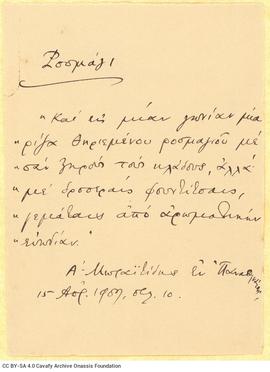 Ροσμάρι
"Καὶ εἰς μίαν γωνίαν μία
"ρίζα θηριεμένου ροσμαριοῦ μὲ
"σὰν ξηροὺς τοὺς κλάδους, ἀλλὰ
"μὲ δροσεραῖς φουντίτσαις,
"γεμάταις ἀπὸ ἀρωματικὴν
"εὐωδίαν."
Α. Μωραϊτίδης ἐν
15 Απρ. 1907, σελ. 10.
CC BY-SA 4.0 Cavafy Archive Onassis Foundation